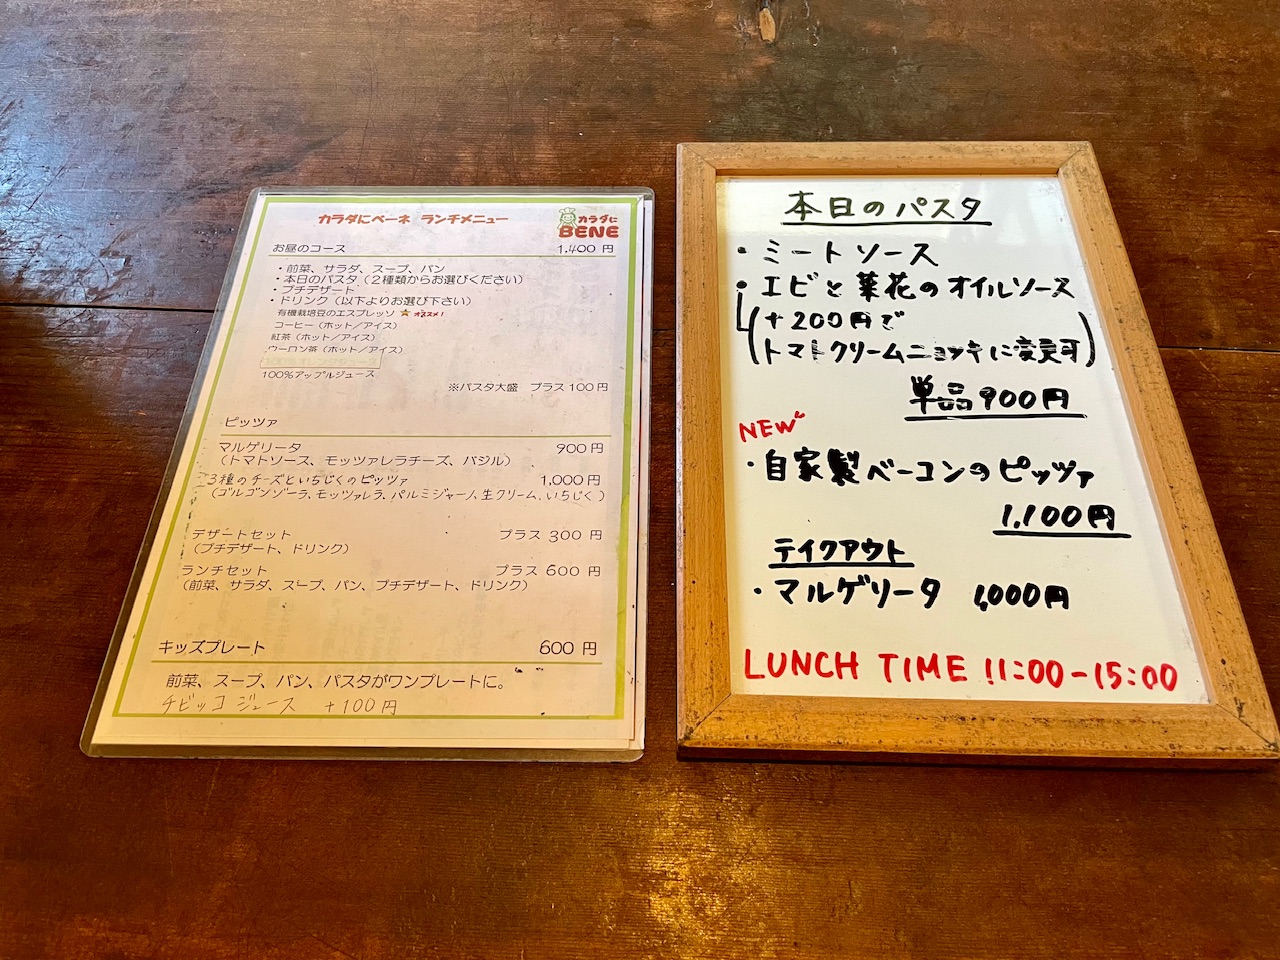 カラダにベーネ ランチメニュー
カラダに
BENE
お昼のコース 1,400 円
・前菜、サラダ、スープ、パン
・本日のパスタ（２種類からお選びください）
・プチデザート
・ドリンク（以下よりお選び下さい）
有機栽培豆のエスプレッソ ★オススメ！
コーヒー（ホット／アイス）
紅茶（ホット／アイス）
ウーロン茶（ホット／アイス）
100%アップルジュース
※パスタ大盛 プラス100円
ピッツァ
マルゲリータ 900円
（トマトソース、モッツァレラチーズ、バジル）
3種のチーズといちじくのピッツァ 1,000円
（ゴルゴンゾーラ、モッツァレラ、パルミジャーノ、生クリーム、いちじく）
デザートセット プラス 300 円
（プチデザート、ドリンク）
ランチセット プラス 600 円
（前菜、サラダ、スープ、パン、プチデザート、ドリンク）
キッズプレート 600 円
前菜、スープ、パン、パスタがワンプレートに。
チビッコ ジュース +100円
本日のパスタ
・ミートソース
・エビと菜花のオイルソース
(+200円で
トマトクリームニョッキに変更可)
単品900円
NEW
・自家製ベーコンのピッツァ
1,100円
テイクアウト
・マルゲリータ 1,000円
LUNCH TIME 11:00-15:00